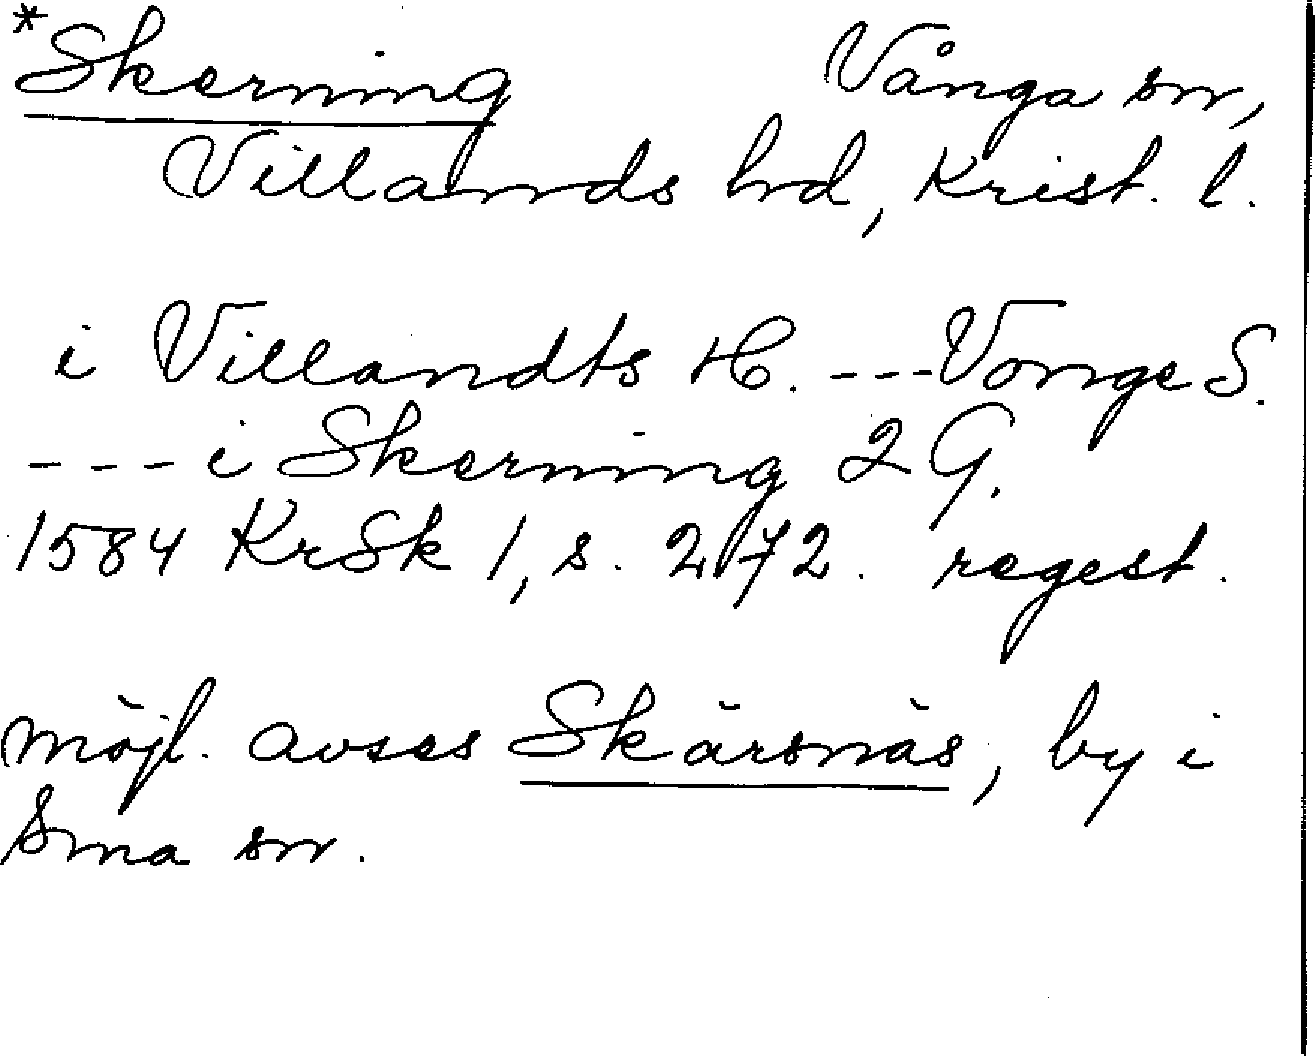 *Skerning Vånga sn,
Villands hd, Krist. l.
i Villandts H. ---Vonge S.
--- i Skerning 2 G.
1584 KrSk 1, s. 272. regest.
möjl. avses Skärsnäs, by i
sma sn.